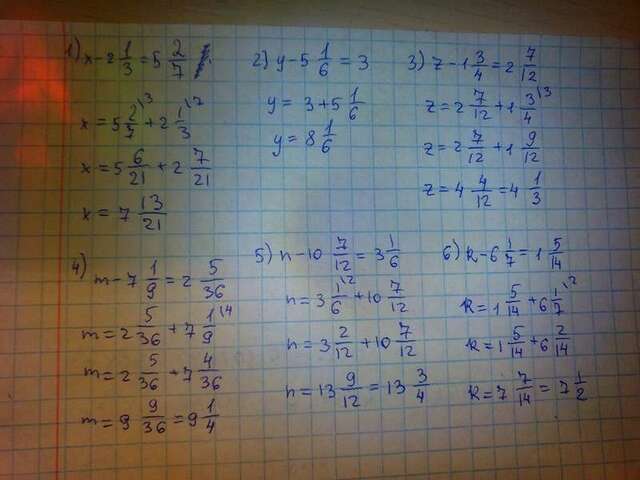 1) x - 2 1/3 = 5 2/7
x = 5 2/7 \3 + 2 1/3 \7
x = 5 6/21 + 2 7/21
x = 7 13/21
2) y - 5 1/6 = 3
y = 3 + 5 1/6
y = 8 1/6
3) z - 1 3/4 = 2 7/12
z = 2 7/12 + 1 3/4 \3
z = 2 7/12 + 1 9/12
z = 4 4/12 = 4 1/3
4) m - 7 1/9 = 2 5/36
m = 2 5/36 + 7 1/9 \4
m = 2 5/36 + 7 4/36
m = 9 9/36 = 9 1/4
5) n - 10 7/12 = 3 1/6
n = 3 1/6 \2 + 10 7/12
n = 3 2/12 + 10 7/12
n = 13 9/12 = 13 3/4
6) k - 6 1/7 = 1 5/14
k = 1 5/14 + 6 1/7 \2
k = 1 5/14 + 6 2/14
k = 7 7/14 = 7 1/2